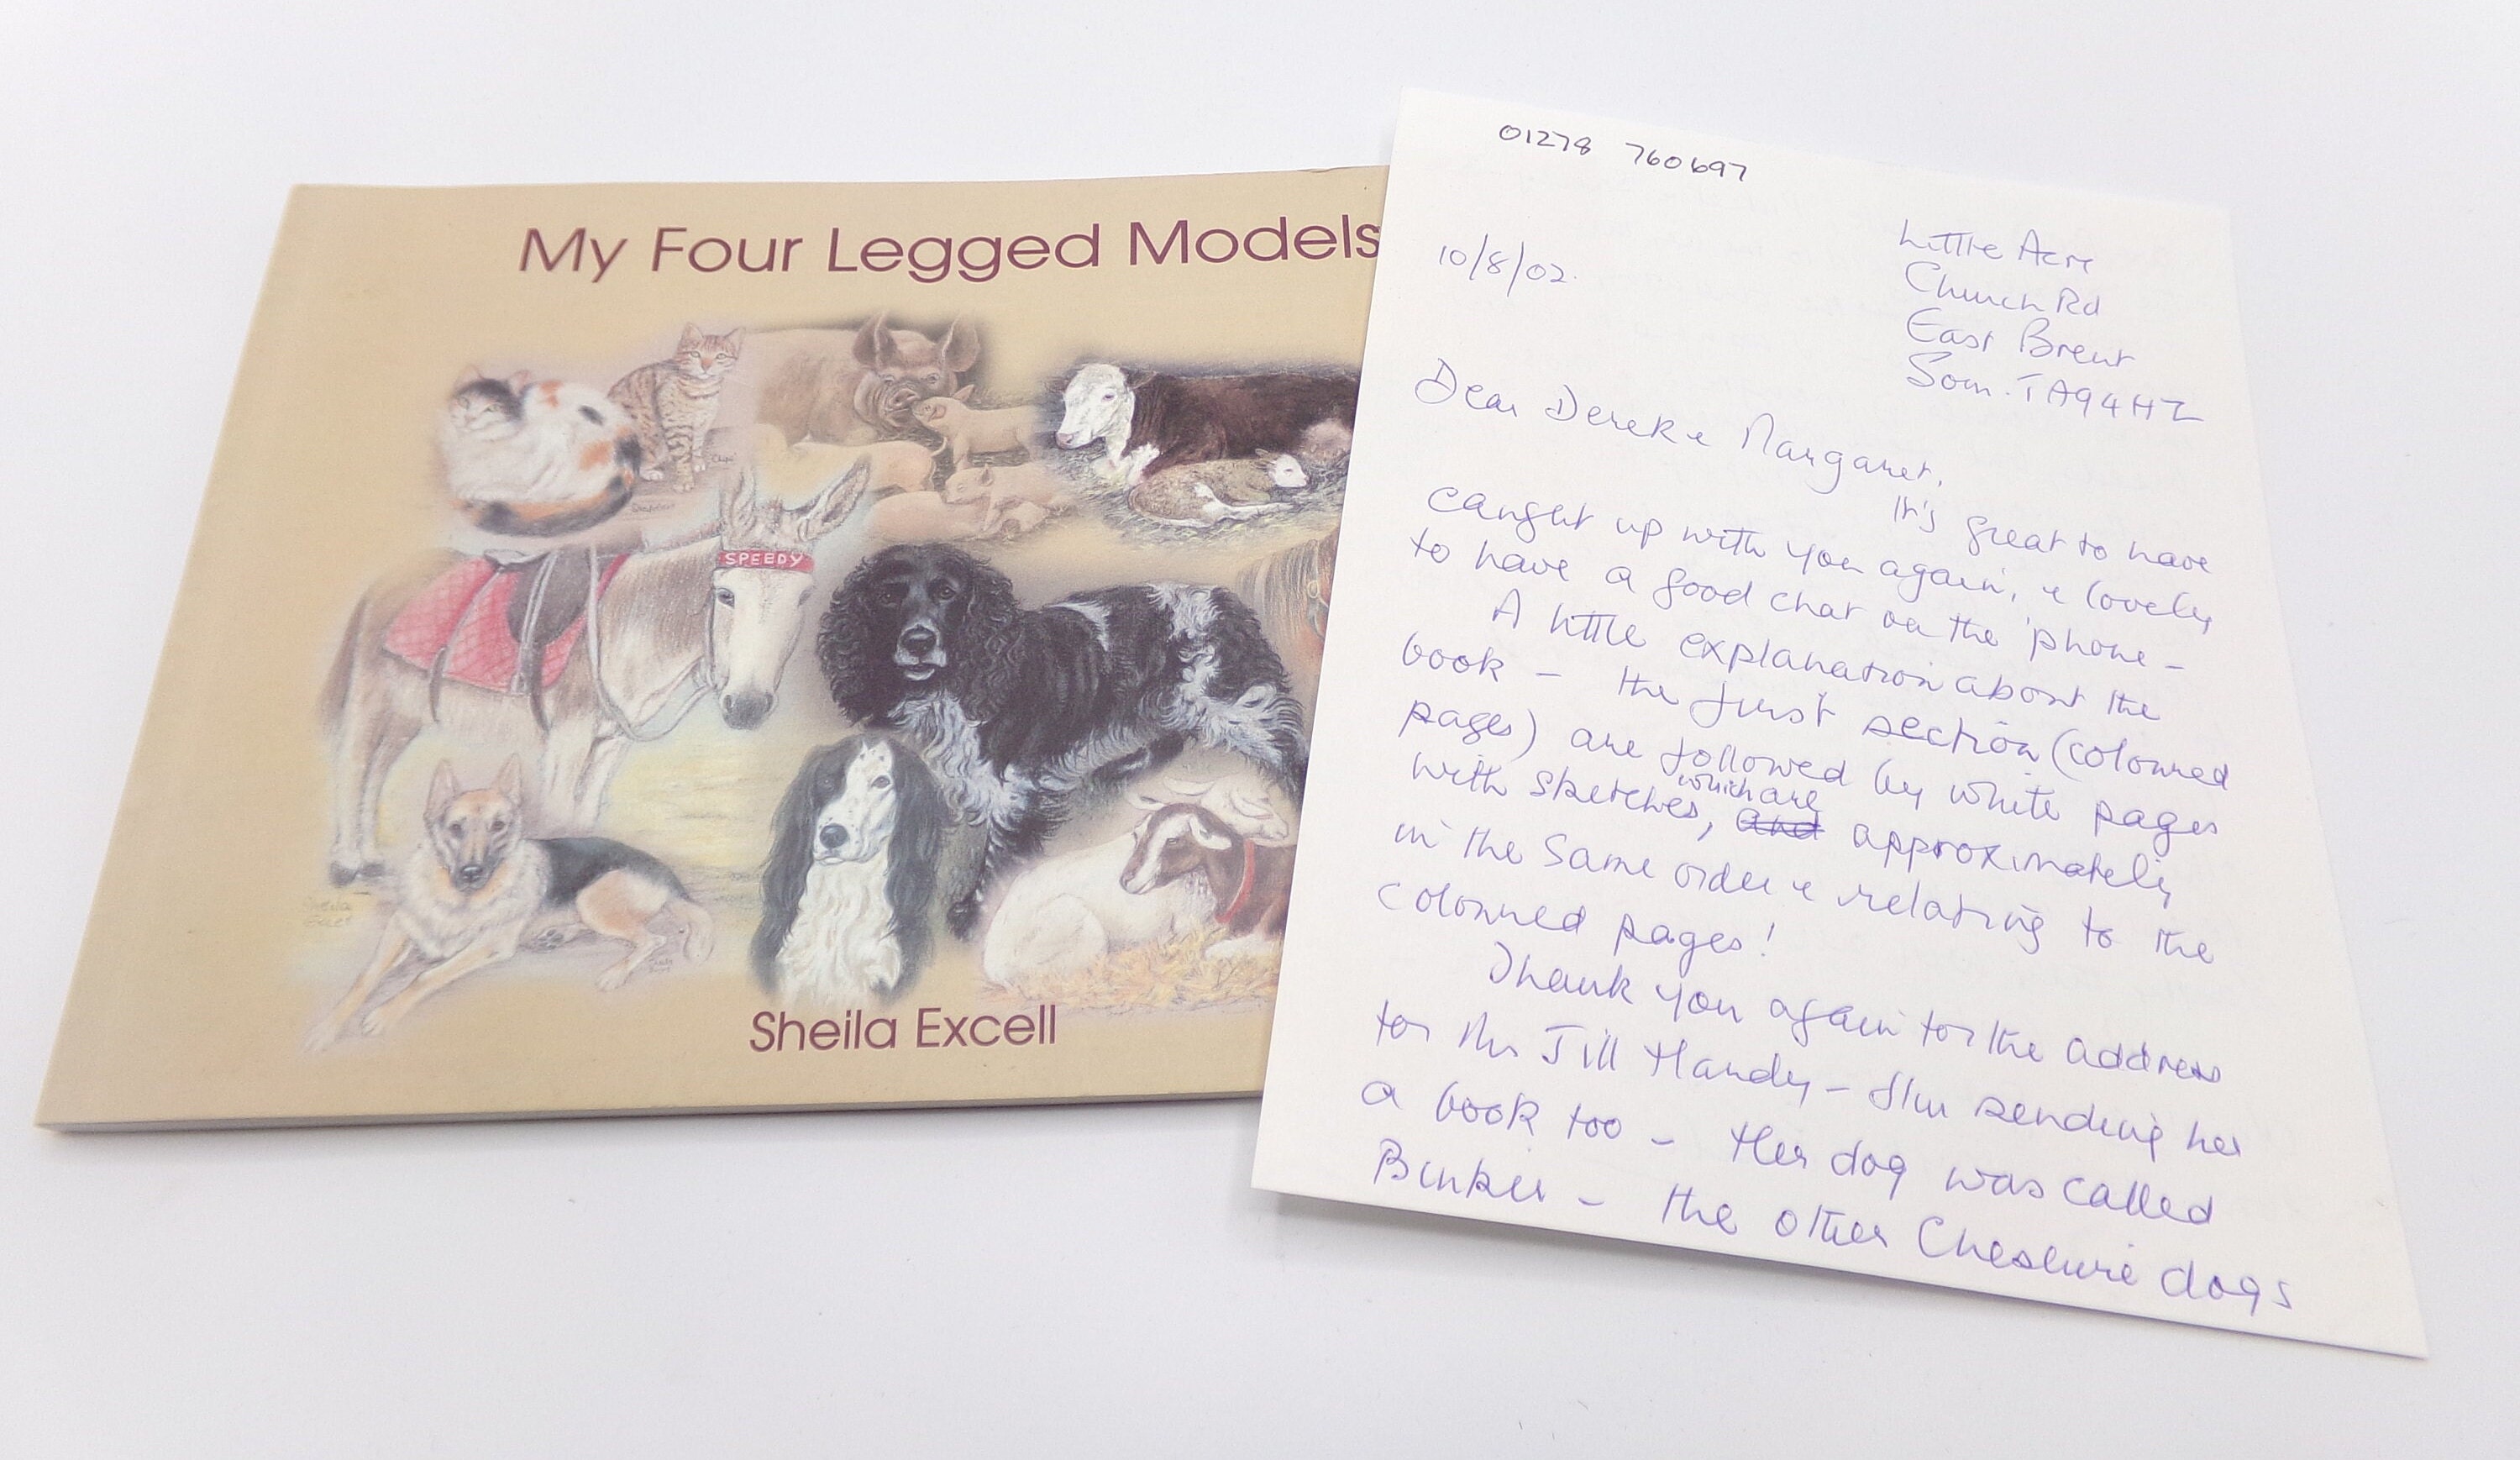 My Four Legged Models
SPEEDY
Sheila Excell
01278 760697
10/8/02.
Little Acre
Church Rd
East Brent
Som. TA9 4HZ
Dear Derek & Margaret,
It's great to have
caught up with you again, & lovely
to have a good chat on the 'phone –
A little explanation about the
book – the first section (coloured
pages) are followed by white pages
with sketches, and which are approximately
in the same order & relating to the
coloured pages!
Thank you again for the address
for Mrs Jill Handy – I'm sending her
a book too – Her dog was called
– the other Cheshire dogs